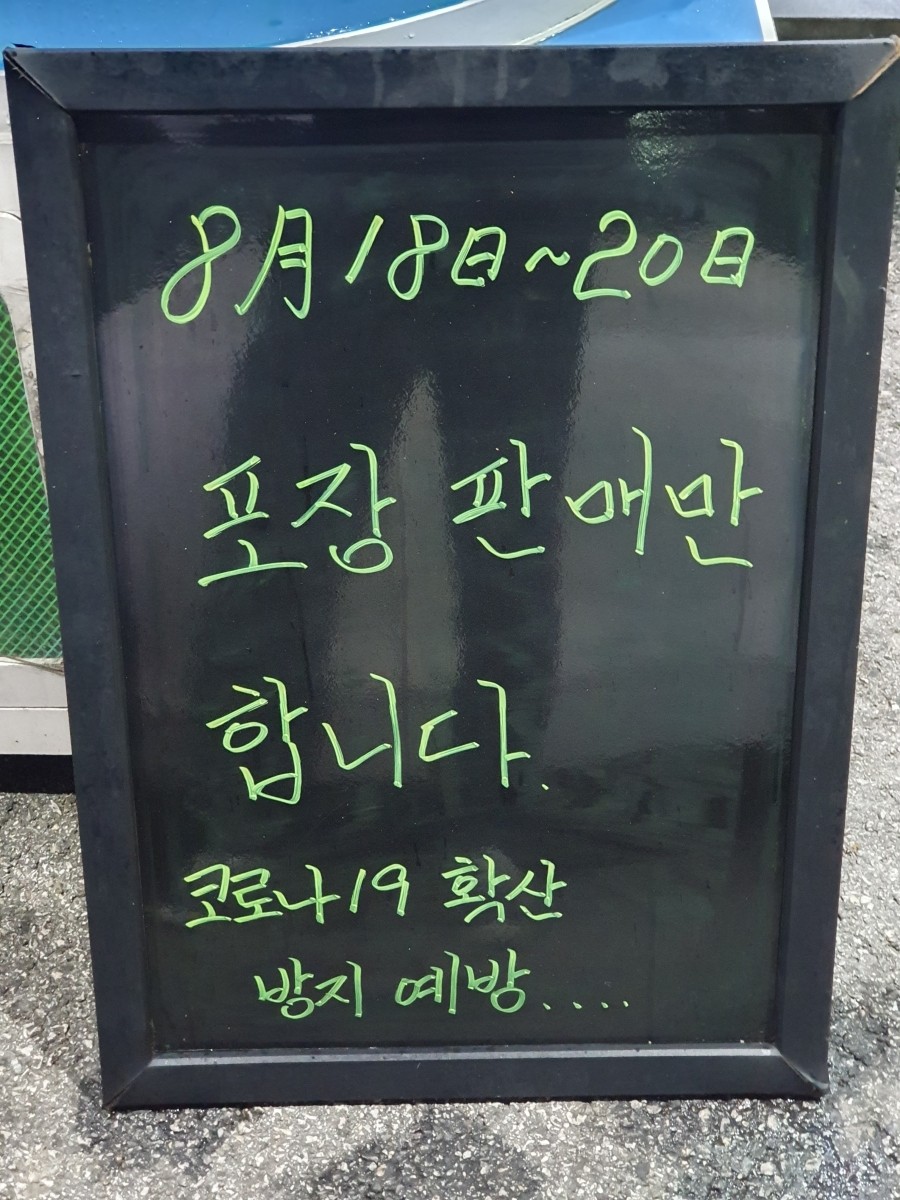 8月 18日~20日
포장 판매만
합니다.
코로나19 확산
방지 예방.....